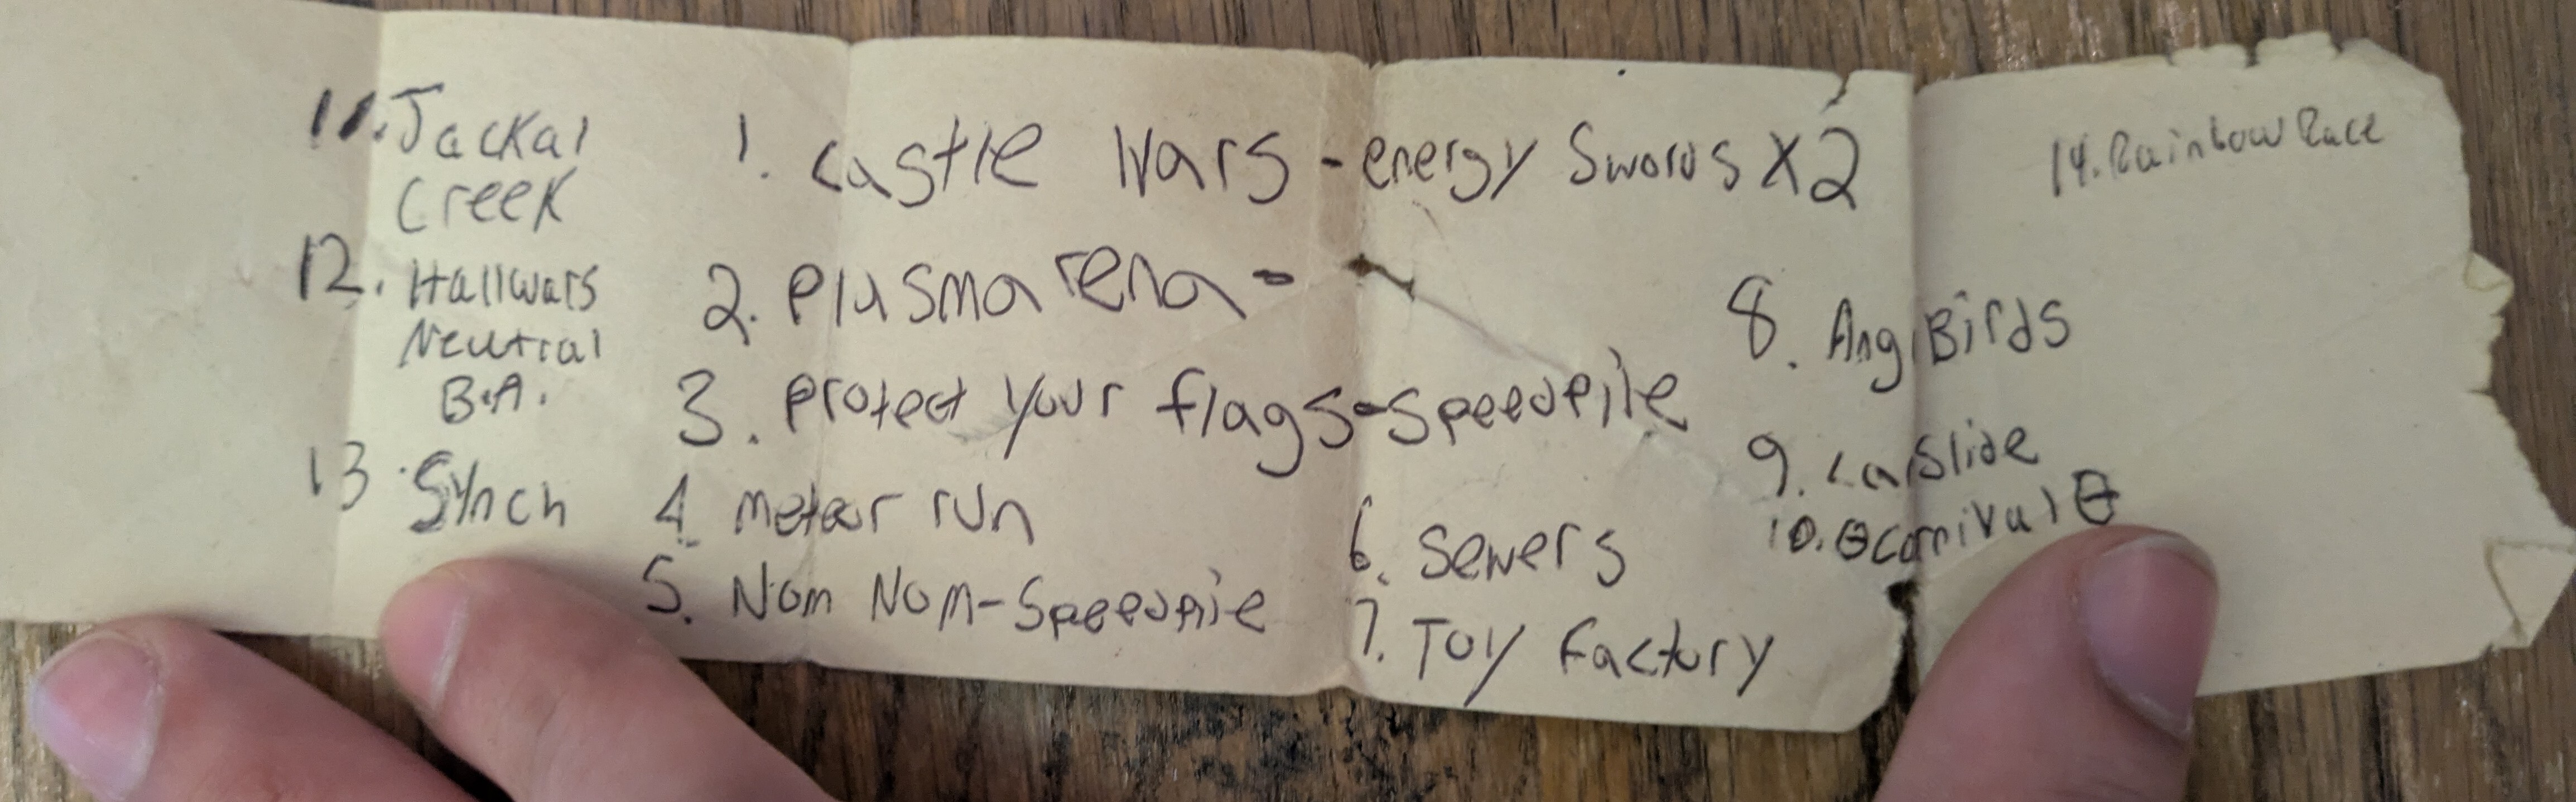 1. Castle Wars - energy Swords X2
2. Plasmarena -
3. Protect your flags - Speedpile
4. Meteor run
5. Nom Nom - Speedpile
6. Sewers
7. Toy factory
8. AngBirds
9. CarSlide
10. θ Carnival θ
11. Jackal
Creek
12. Hallwars
Neutral
B.A.
13. Synch
14. Rainbow Race